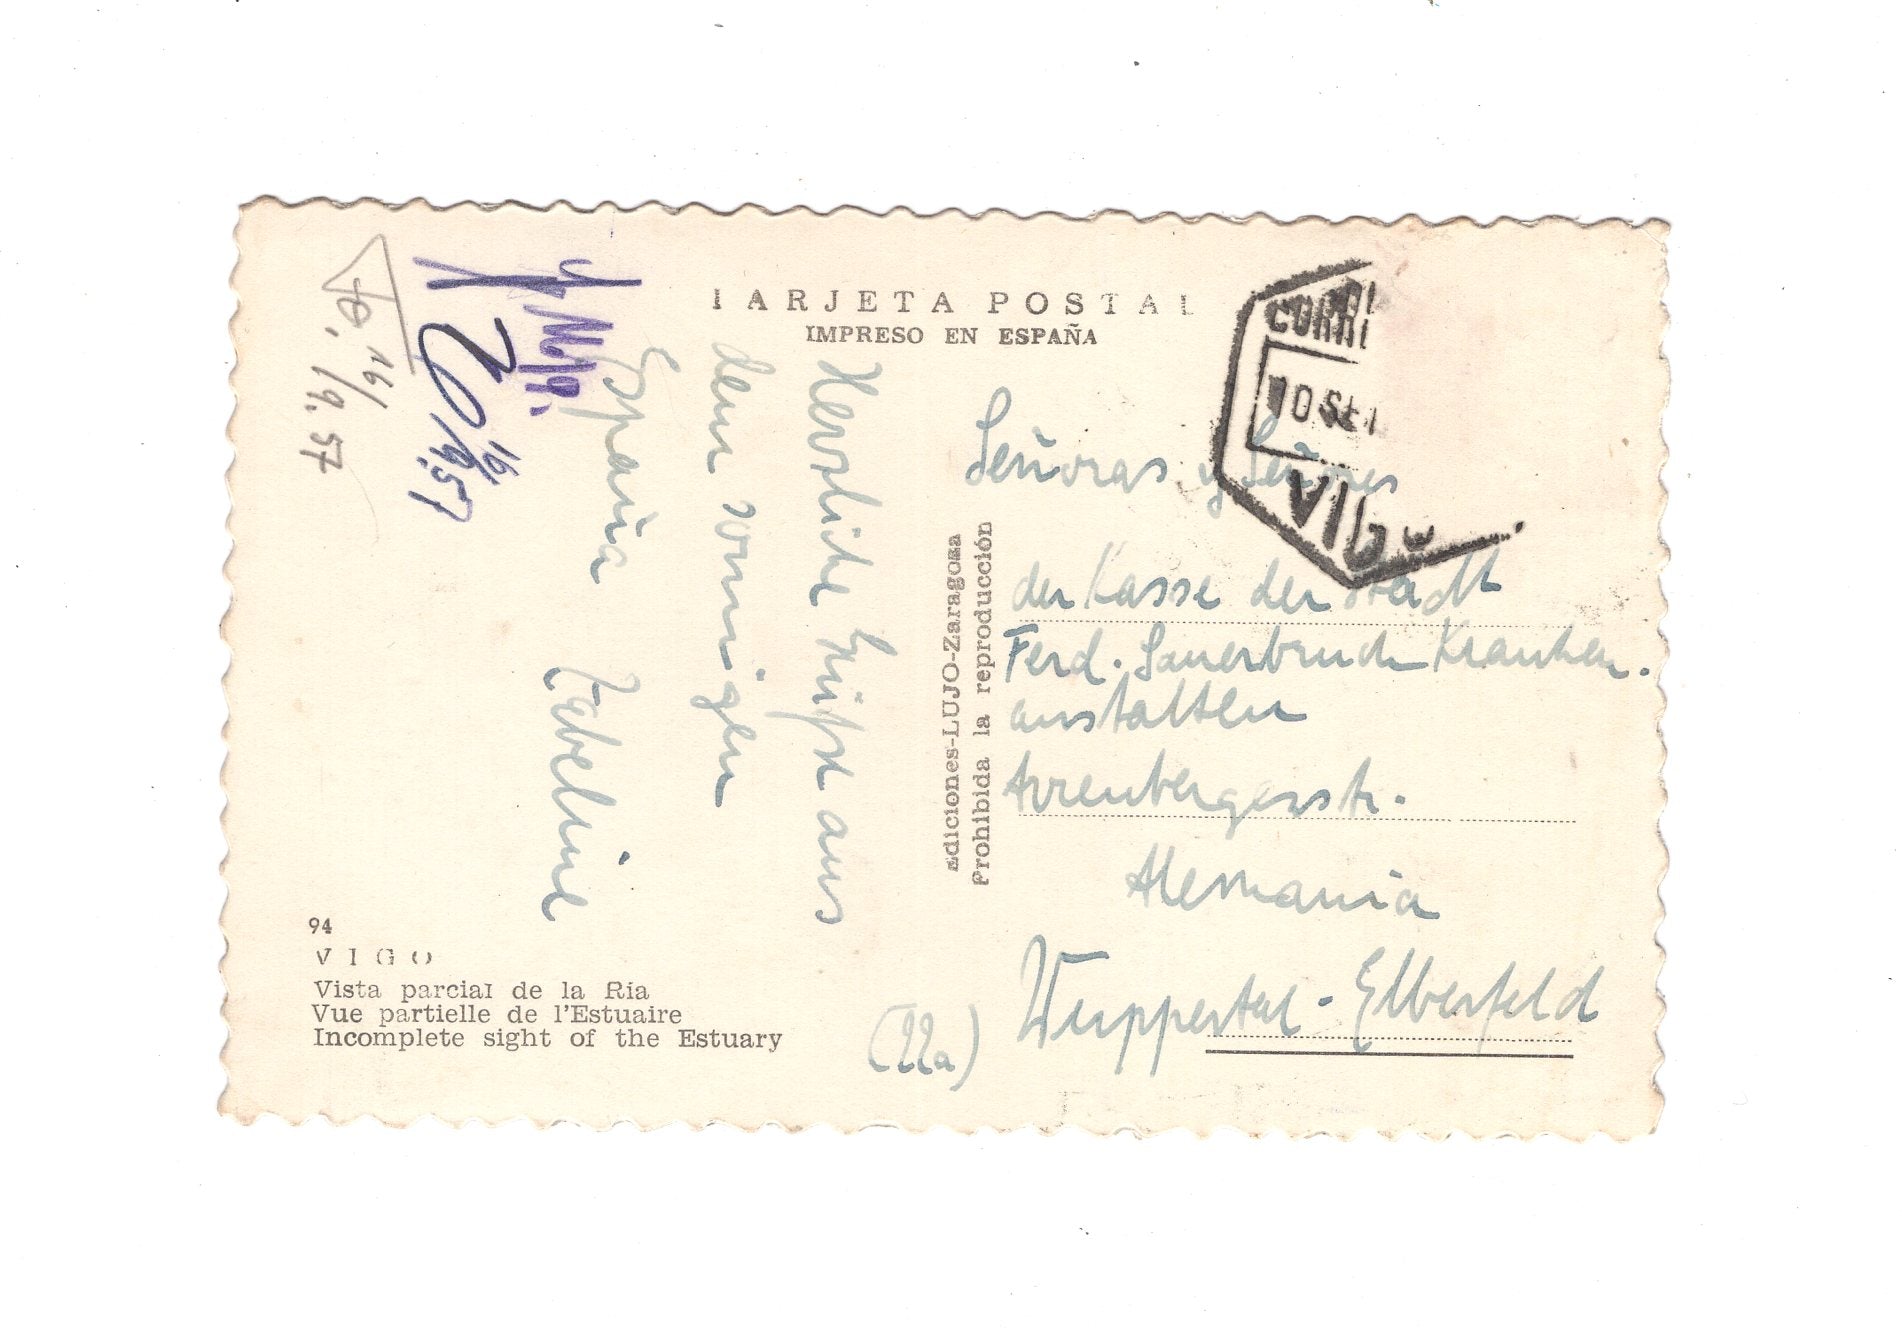 TARJETA POSTAL
IMPRESO EN ESPAÑA
CORRE
10 SE
VIGO
16/9.57
16/9.57
Herzliche Grüße aus
dem sonnigen
España
Ediciones-LUJO-Zaragoza
Prohibida la reproducción
Señoras y Señores
der Kasse der Stadt
Ferd. Sauerbruch Kranken-
anstalten
Arrenbergerstr.
Alemania
Wuppertal-Elberfeld
(22a)
94
VIGO
Vista parcial de la Ria
Vue partielle de l'Estuaire
Incomplete sight of the Estuary